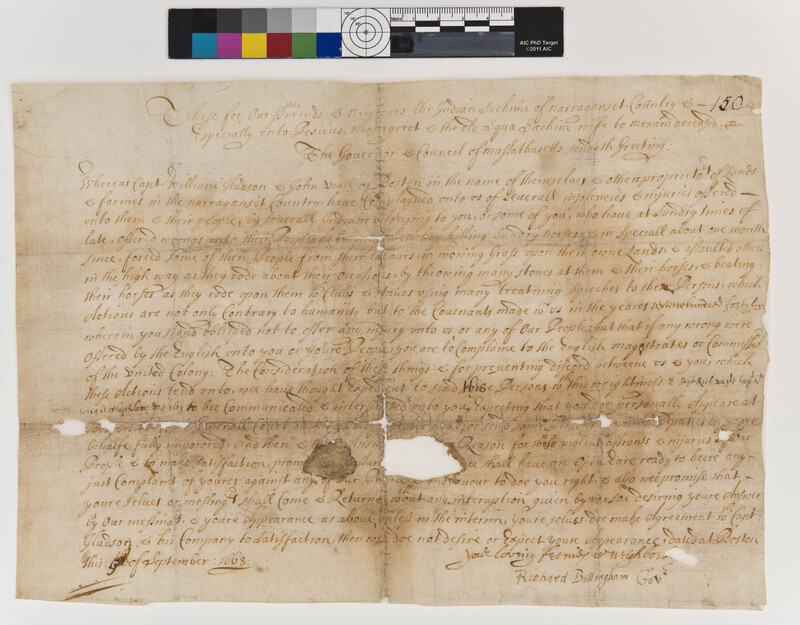 AIC PhD Target
©2011 AIC
150
These for Our ffreinds & Neigours the Indian Sachims of Narraganset Country &
Especially vnto Posecus, Ninegreet & the old Squa Sachim wife to mexam deceased, &
The Governor & Council of Massathusetts sendeth Greeting:
Whereas Capt William Hudson & John viall of Boston in the name of themselves & other proprietors of Lands
& farmes in the narraganset Country have Complayned vnto vs of severall insolencies & injuries offered
vnto them & their People, by severall Indians belonging to you, or some of you, who have at sundry times of
late offered wrongs vnto their People, killing sundry horses, & in speciall about one month
since, forced some of their People from their Labours in mowing Grass vpon their owne Lands, & assaulted others
in the high way as they rode about their Occasions, by throwing many stones at them & their horses, & beating
their horses as they rode vpon them wth Clubs & staves vsing many Treatning speeches to their Persons, which
Actions are not only Contrary to humanity but to the Covenants made wth vs in the yeare
wherein you stand obliged not to offer any injury vnto vs or any of Our People, but that if any wrong were
Offered by the English vnto you or youre People you are to Complaine to the English magistrates or Commissrs
of the Vnited Colony: The Consideration of these things & for preventing discord betweene vs & you, which
these Actions tend vnto, we have thought expedient to send these Persons
to bee Communicated & interpreted vnto you, Expecting that you doe personally Appeare at
Generall Court or send some
behalfe fully impowred, and then & Reason for those violent affronts & injuries of Our
People & to make satisfaction, shall have an Open eare ready to heere any
just Complaint of youres against any of Our to doe you right, & also wee promise that
youre selves or messingrs shall Come & Returne without any interruption given by vs. soe desiring youre Answer
by Our messingrs & youre Appearance as above, vnless in the interim youre selves doe make Agreement wth Capt
Hudson & his Company to satisfaction, then wee doe not desire or Expect youre Appearance, dated at Boston
this of September: 1668: Your loving freinds & Neighbors
Richard Billingham Govr